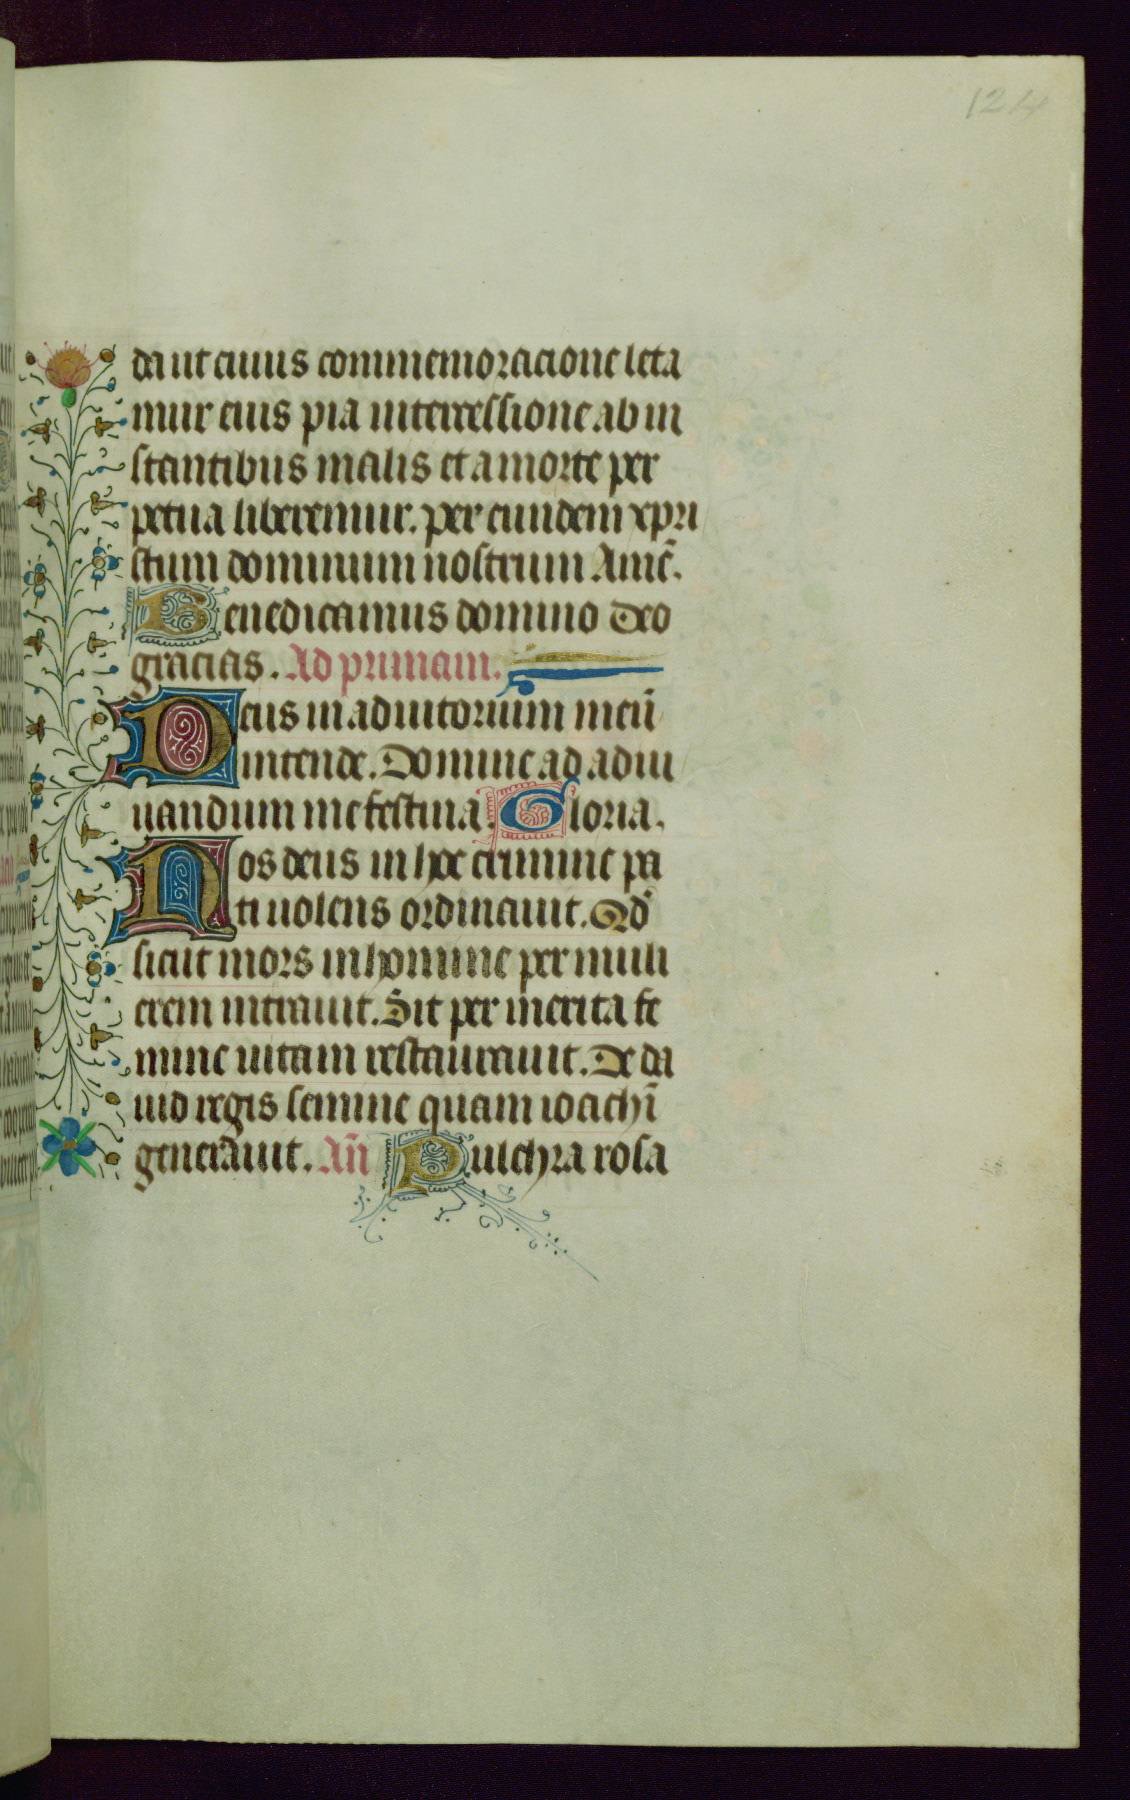 124
da ut cuius commemoracione leta
mur eius pia intercessione ab in
stantibus malis et a morte per
petua liberemur. per eundem xpri
stum dominum nostrum Amē.
Benedicamus domino Deo
gracias. Ad primam.
Deus in adiutorium meū
intende. Domine ad adiu
uandum me festina. Gloria.
Nos deus in hoc crimine pa
ti nolens ordinauit. Qd'
sicut mors in homine per muli
erem intrauit. Sit per merita fe
mine uitam restaurauit. De da
uid regis semine quam ioachī
generauit. Añ Pulchra rosa